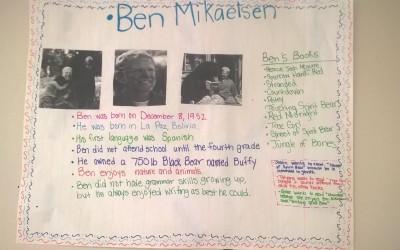 •Ben Mikaelsen
• Ben was born on December 8, 1952.
• He was born in La Paz, Bolivia.
• His first language was Spanish
• Ben did not attend school until the fourth grade
• He owned a 750lb Black Bear named Buffy
• Ben enjoys nature and animals.
• Ben did not have grammar skills growing up,
but he always enjoyed writing as best he could.
Ben's Books
• Rescue Josh McGuire
• Sparrow Hawk Red
• Stranded
• Countdown
• Petey
• Touching Spirit Bear
• Red Midnight
• Tree Girl
• Ghost of Spirit Bear
• Jungle of Bones